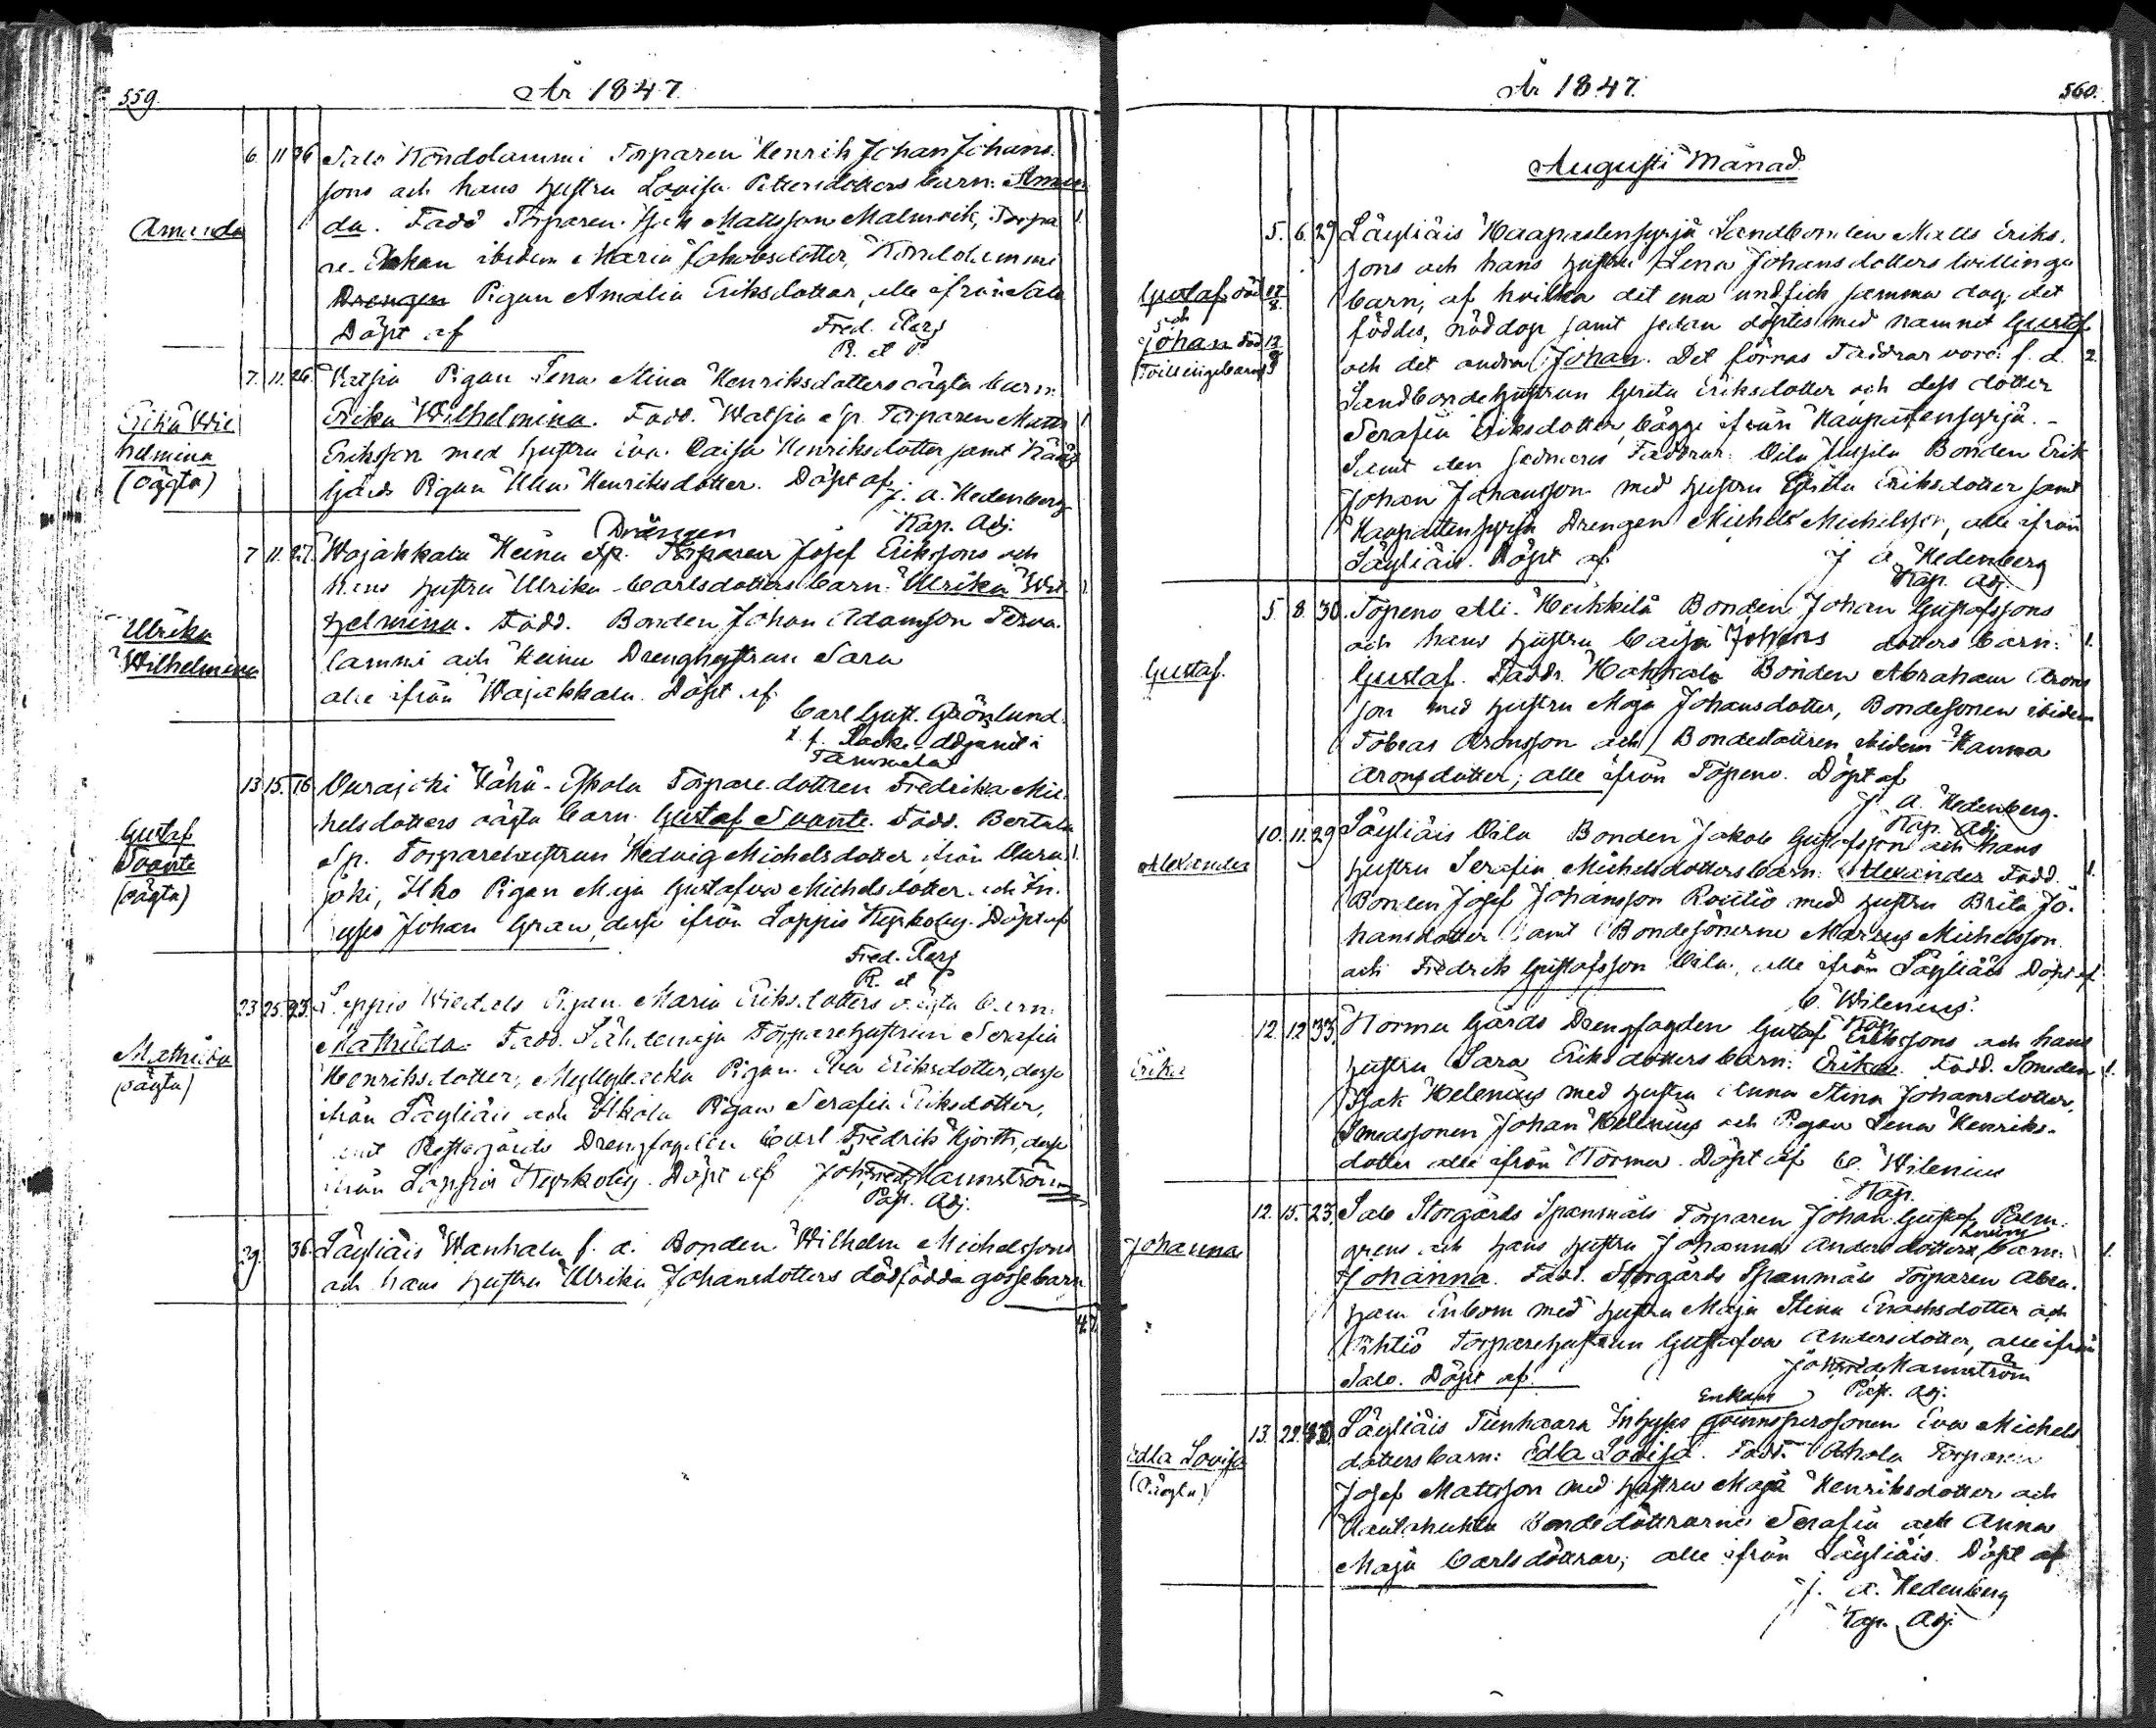 559.
År 1847.
6. 11 36 Salo Kondolammi Torparen Henrik Johan Johans-
sons och hans hustru Lovisa Pettersdotters barn: Aman-
Amanda
da. Fadd Torparen Isak Mattsson Malmvik, Torpa 1.
re- ibidem Maria Jakobsdotter, Kondolammi
Drengen Pigan Amalia Eriksdotter, alle ifrån Salo
Döpt af Fred. 
R. et P.
7. 11. 26. Watsia Pigan Lena Stina Henriksdotters oägta barn:
Erika Wil
helmina
(oägta)
Erika Wilhelmina. Fadd. Watsia Sp. Torparen Matts 1
Eriksson med hustru Eva Caisa Henriksdotter samt
Gårds Pigan Ulla Henriksdotter. Döpt af J. A. Hedenberg
Kap. Adj.
Drängen
7 11. 27. Wojakkala Heinu Sp. Torparen Josef Erikssons och
hans hustru Ulrika Carlsdotters barn: Ulrika Wil
Ulrika
Wilhelmina
helmina. Fadd. Bonden Johan Adamsson Terva-
lammi och Heinu Drenghustrun Sara
alle ifrån Wojakkala. Döpt af
Carl Gust. Grönlund.
t. f. Sacki-adjunct i
Tammela
13 15. 16 Ourajoki Wähä-Iskala Torparedottren Fredrika Mic-
Gustaf
Svante
(oägta)
helsdotters oägta barn Gustaf Svante. Fadd. Bertula
Sp. Torparehustrun Hedvig Michelsdotter från Oura 1.
joki, Ilko Pigan Maja Gustafva Michelsdotter och In-
hyses Johan Gran, desse ifrån Loppis Kyrkoby. Döpt af
Fred. 
R. et P
23 25. 23. Loppis Pigan Maria Eriksdotters oägta barn:
Mathilda
(oägta)
Mathilda. Fadd. Torparehustrun Serafia
Henriksdotter, Pigan Eva Eriksdotter, desse
ifrån Läyliäis och Pigan Serafia Eriksdotter,
samt Drengfogden Carl Fredrik Hjorth, desse
ifrån Loppis Kyrkoby. Döpt af Joh. Fred. Hamnström
Past. Adj.
29. 36. Läyliäis Wanhala f. d. Bonden Wilhelm Michelssons
och hans hustru Ulrika Johansdotters dödfödda gossebarn
47.
År 1847.
560.
Augusti Månad.
5. 6. 29 Läyliäis Haapastensyrjä Landbonden Matts Eriks-
sons och hans hustru Lena Johansdotters tvillinge
Gustaf död
och
Johan död 13
Tvillingebarn
barn, af hvilka det ena undfick samma dag, det
föddes, nöddop samt sedan döptes med namnet Gustaf
och det andra Johan. Det förras Faddrar voro: f. d. 2.
Landbondehustrun Greta Eriksdotter och dess dotter
Serafia Eriksdotter, bägge ifrån Haapastensyrjä. -
Samt den sednares Faddrar: Oila Bonden Erik
Johan Johansson med hustru Greta Eriksdotter samt
Haapastensyrjä Drengen Michel Michelsson, alle ifrån
Läyliäis. Döpt af J A Hedenberg
Kap. Adj.
5. 8. 30. Topeno Ali-Heikkilä Bonden Johan Gustafssons
och hans hustru Caisa Johans dotters barn: 1.
Gustaf.
Gustaf. Faddr. Hakkala Bonden Abraham Arons
son med hustru Maja Johansdotter, Bondesonen ibidem
Tobias Aronsson och Bondedottren ibidem Hanna
Aronsdotter; alle ifrån Topeno. Döpt af
J. A. Hedenberg.
Kap. Adj
10. 11. 29 Läyliäis Oila Bonden Jakob Gustafsson och hans
Alexander
hustru Serafia Michelsdotters barn: Alexander Fadd. 1.
Bonden Josef Johansson Rostiö med hustru Brita Jo-
hansdotter samt Bondesönerne Marcus Michelsson
och Fredrik Gustafsson Oila, alle ifrån Läyliäis Döpt af
C. Wilenius.
Kap.
12. 12 33. Norma Gårds Drengfogden Gustaf Erikssons och hans
Erika
hustru Sara Eriksdotters barn: Erika. Fadd. Smeden 1.
Isak Helenius med hustru Anna Stina Johansdotter,
Smedssonen Johan Helenius och Pigan Lena Henriks-
dotter alle ifrån Norma. Döpt af C. Wilenius
Kap.
12. 15. 23. Salo Storgårds Spanmåls Torparen Johan Gustaf Palm-
Johanna
grens och hans hustru Johanna Andersdotters barn: 1.
Johanna. Fadd. Storgårds Spanmåls Torparen Abra-
ham Enbom med hustru Maja Stina Enochsdotter och
Torparehustrun Gustafva Andersdotter, alle ifrån
Salo. Döpt af Joh. Fred. Hamnström
Past. Adj.
Enkans
13. 22. 33. Läyliäis Tienhaara Inhyses qvinnspersonen Eva Michels
Edla Lovisa
(Oägta)
dotters barn: Edla Lovisa. Fadd. Ahola Torparen
Josef Mattsson med hustru Maja Henriksdotter och
Rautahuhta Bondedöttrarne Serafia och Anna
Maja Carlsdöttrar; alle ifrån Läyliäis. Döpt af
J. A. Hedenberg
Kap. Adj.